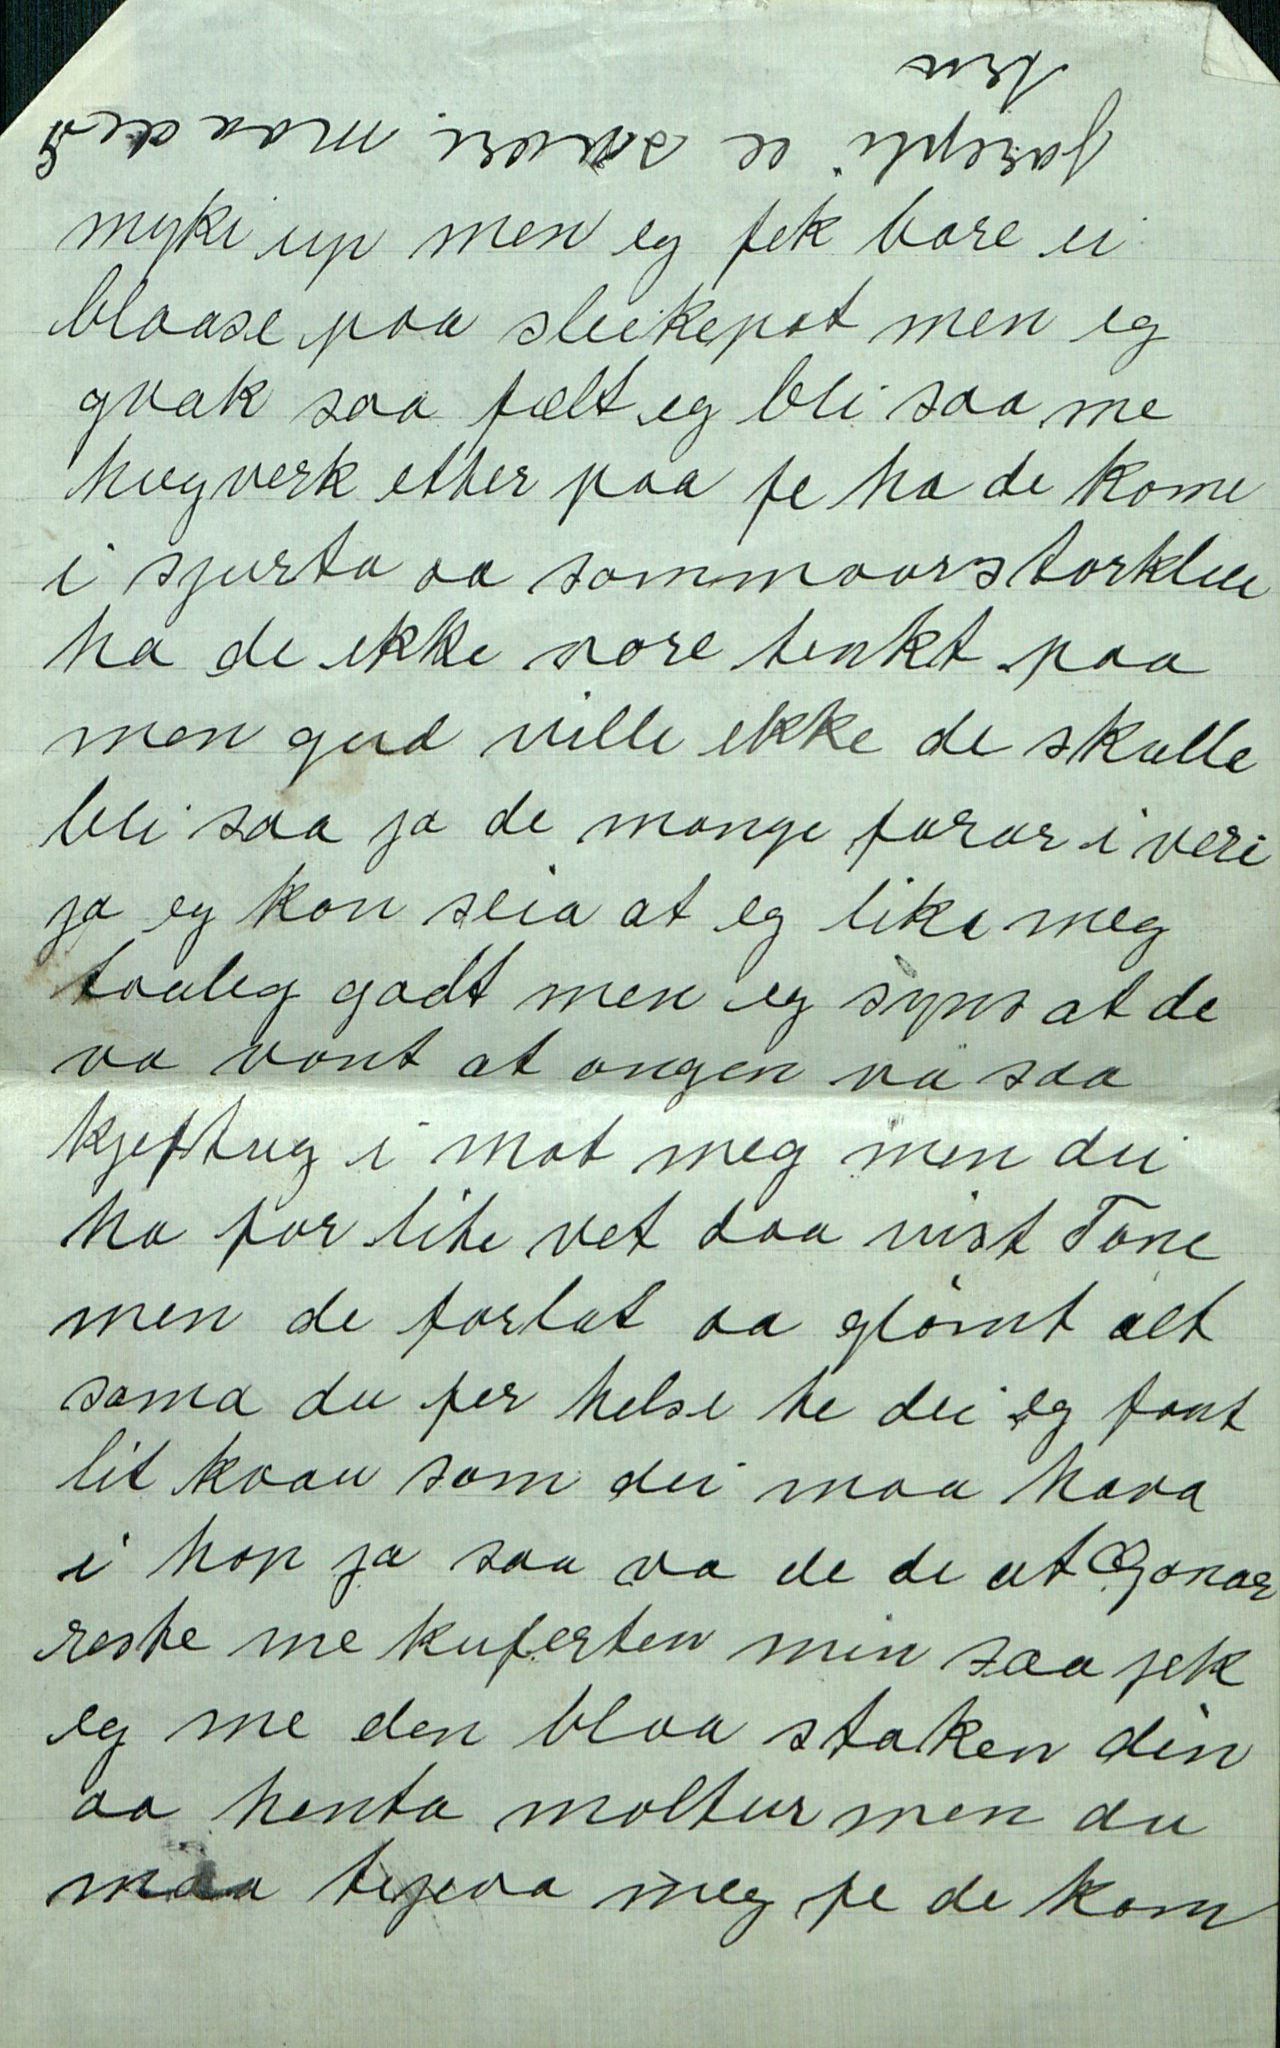 myki up men eg fek bare ei
blaase paa sleikepot men eg
gvak saa fælt eg bli saa me
hugverk etter paa fe ha de kome
i sjurta aa sommaarstorklee
ha de ikke vore tenkt paa
men gud ville ikke de skulle
bli saa ja de mange farar i veri
ja eg kan seia at eg lika meg
taaleg godt men eg syns at de
va vont at ongen va saa
kjeftug i mot meg men dei
ha for lite vet daa vist Tone
men de forlat aa glømt alt
sama du fer helse te dei eg fant
lit kvau som dei maa hava
i hop ja saa va de de at Gonar
reste me kuferten min saa fek
eg me den blaa staken din
aa henta moltur men du
maa tejeva meg fe de kom
maa dei
ten